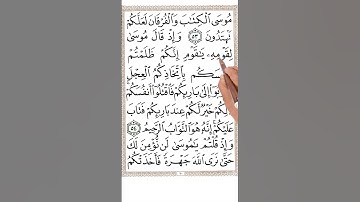 مُوسَى ٱلْكِتَٰبَ وَٱلْفُرْقَانَ لَعَلَّكُمْ
تَهْتَدُونَ ٥٣ وَإِذْ قَالَ مُوسَىٰ
لِقَوْمِهِۦ يَٰقَوْمِ إِنَّكُمْ ظَلَمْتُمْ
بِٱتِّخَاذِكُمُ ٱلْعِجْلَ
إِلَىٰ بَارِئِكُمْ فَٱقْتُلُوٓا۟ أَنفُسَكُمْ
خَيْرٌ لَّكُمْ عِندَ بَارِئِكُمْ فَتَابَ
عَلَيْكُمْ إِنَّهُۥ هُوَ ٱلتَّوَّابُ ٱلرَّحِيمُ ٥٤
وَإِذْ قُلْتُمْ يَٰمُوسَىٰ لَن نُّؤْمِنَ لَكَ
حَتَّىٰ نَرَى ٱللَّهَ جَهْرَةً فَأَخَذَتْكُمُ